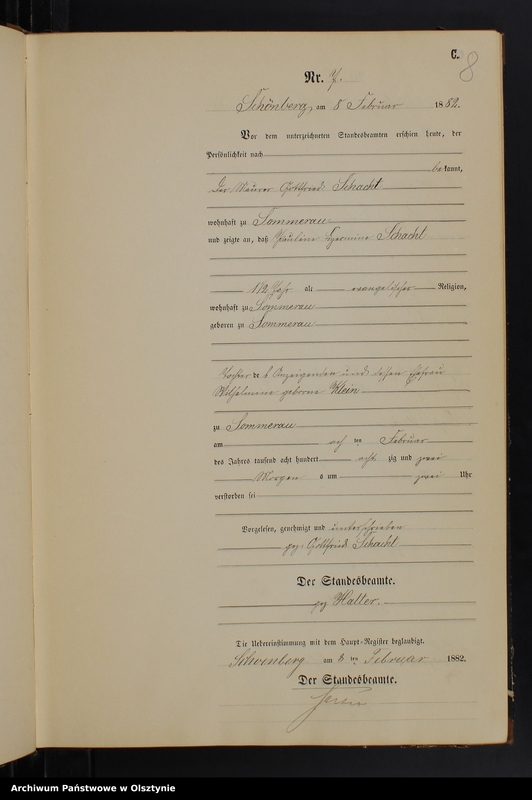 C.
8
Nr. 7.
Schönberg, am 8 Februar 1882.
Vor dem unterzeichneten Standesbeamten erschien heute, der
Persönlichkeit nach
bekannt,
der Maurer Gottfried Schacht
wohnhaft zu Sommerau
und zeigte an, daß Pauline Hermine Schacht
1 1/2 Jahr alt evangelischer Religion,
wohnhaft zu Sommerau
geboren zu Sommerau
Tochter des Anzeigenden und dessen Ehefrau
Wilhelmine geborne Klein
zu Sommerau
am ten Februar
des Jahres tausend acht hundert acht zig und zwei
Morgens um zwei Uhr
verstorben sei
Vorgelesen, genehmigt und unterschrieben
gez. Gottfried Schacht
Der Standesbeamte.
gez Haller.
Die Uebereinstimmung mit dem Haupt-Register beglaubigt.
Schoenberg am 8 ten Februar 1882.
Der Standesbeamte.
Archiwum Państwowe w Olsztynie